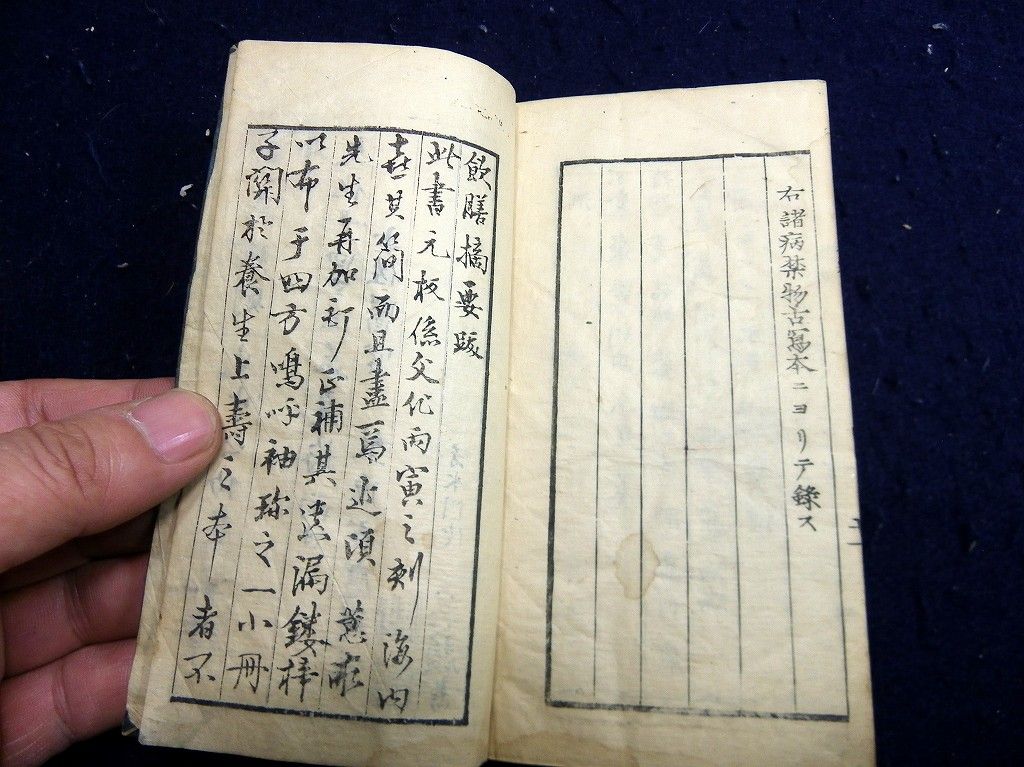 右諸病禁物古寫本ニヨリテ錄ス
飲膳摘要跋
此書元板係文化丙寅之刻海内
喜其簡而且盡焉近須蕙畝
先生再加訂正補其遺漏鏤梓
以布于四方嗚呼袖珍之一小冊
子關於養生上壽之本者不